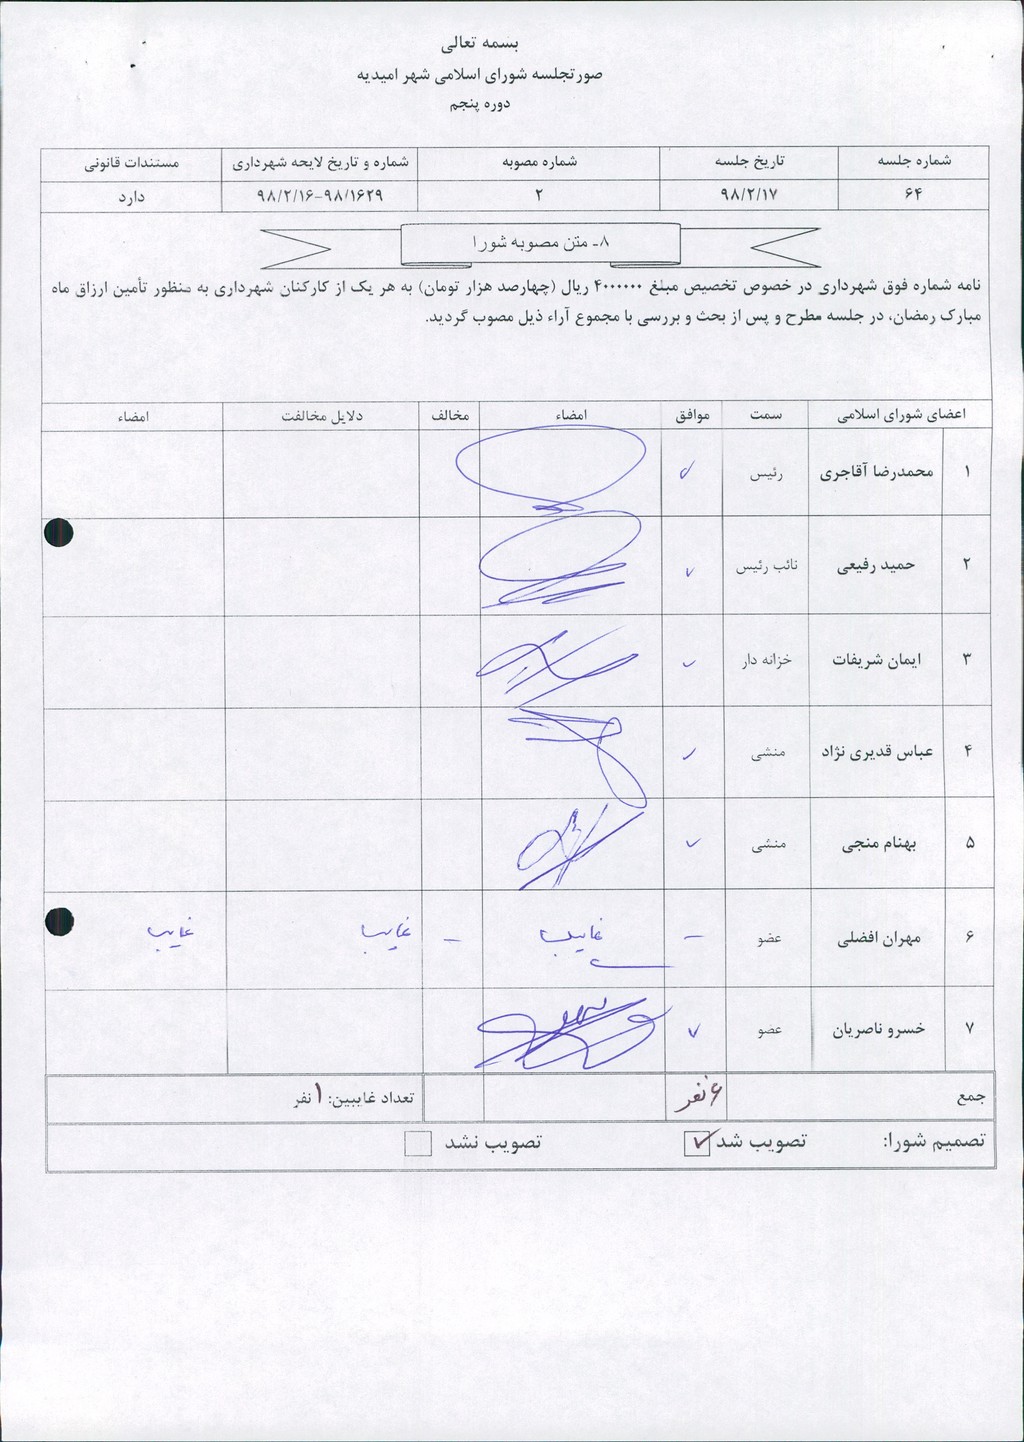 بسمه تعالی
صورتجلسه شورای اسلامی شهر امیدیه
دوره پنجم
شماره جلسه تاریخ جلسه شماره مصوبه شماره و تاریخ لایحه شهرداری مستندات قانونی
۶۴ ۹۸/۲/۱۷ ۲ ۹۸/۲/۱۶-۹۸/۱۶۲۹ دارد
۸- متن مصوبه شورا
نامه شماره فوق شهرداری در خصوص تخصیص مبلغ ۴۰۰۰۰۰۰ ریال (چهارصد هزار تومان) به هر یک از کارکنان شهرداری به منظور تأمین ارزاق ماه
مبارک رمضان، در جلسه مطرح و پس از بحث و بررسی با مجموع آراء ذیل مصوب گردید.
اعضای شورای اسلامی سمت موافق امضاء مخالف دلایل مخالفت امضاء
۱ محمدرضا آقاجری رئیس ✓
۲ حمید رفیعی نائب رئیس ✓
۳ ایمان شریفات خزانه دار ✓
۴ عباس قدیری نژاد منشی ✓
۵ بهنام منجی منشی ✓
۶ مهران افضلی عضو – غایب – غایب غایب
۷ خسرو ناصریان عضو ✓
جمع ۶ نفر تعداد غایبین: ۱ نفر
تصمیم شورا: تصویب شد ✓ تصویب نشد